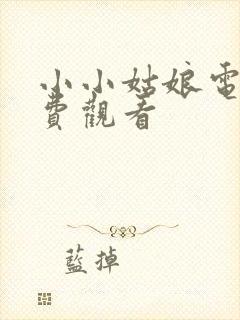 小小姑娘電
費觀看
藍掉